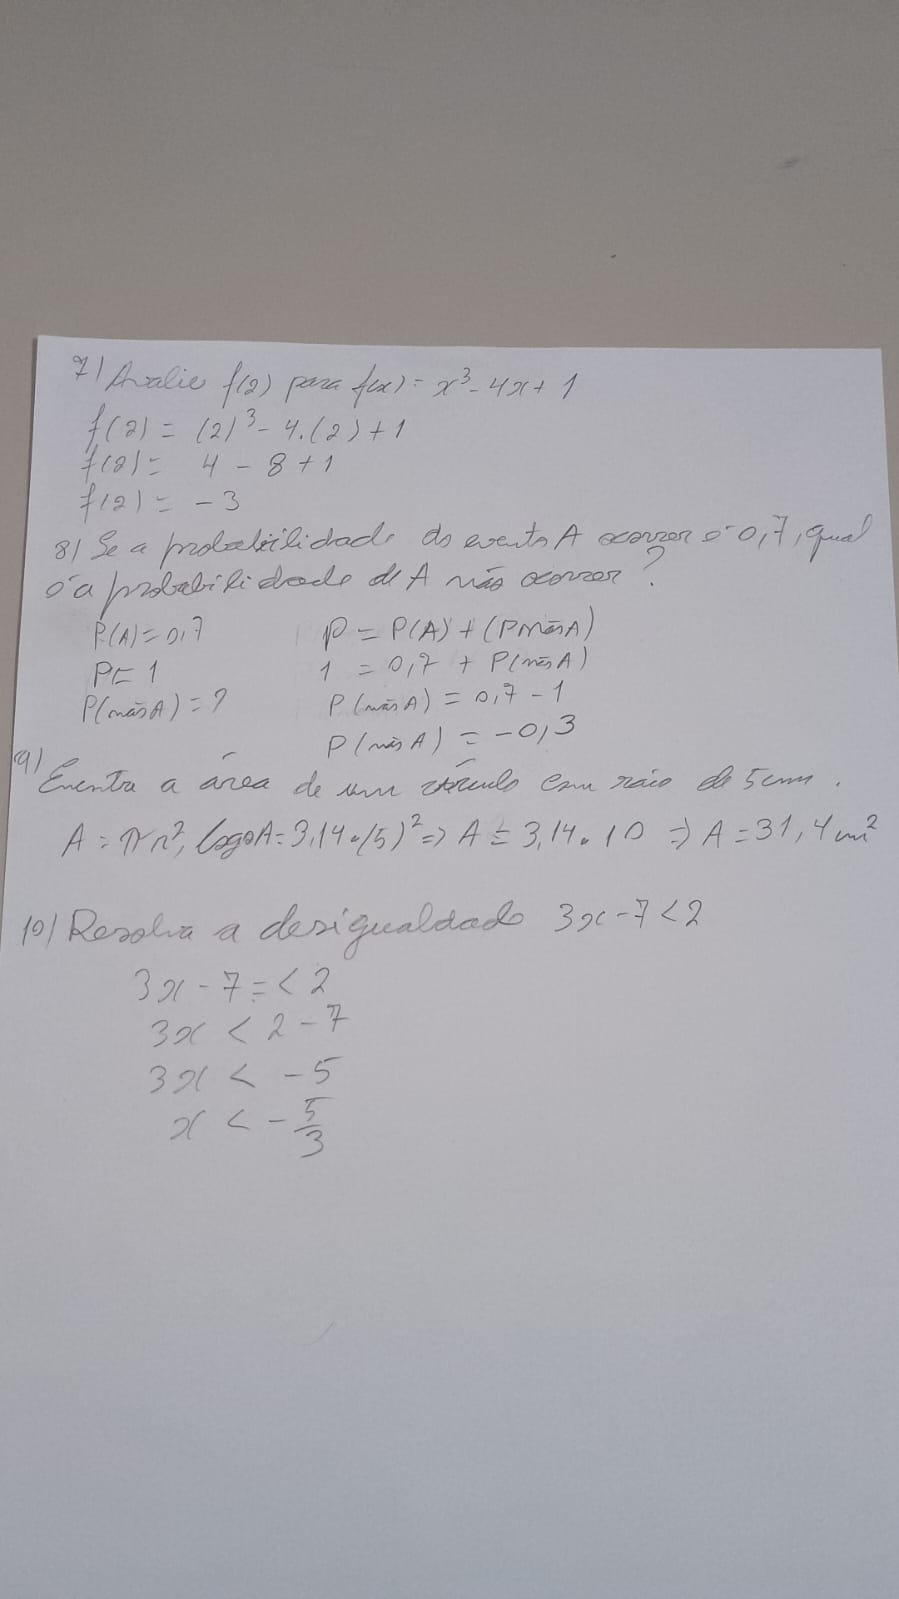 7) Avalie f(2) para f(x) = x³ - 4x + 1
f(2) = (2)³ - 4.(2) + 1
f(2) = 4 - 8 + 1
f(2) = - 3
8) Se a probabilidade do evento A ocorrer é 0,7, qual
é a probabilidade de A não ocorrer?
P(A) = 0,7
P = 1
P(não A) = ?
P = P(A) + (P não A)
1 = 0,7 + P(não A)
P(não A) = 0,7 - 1
P(não A) = -0,3
9)
a área de um círculo com raio de 5 cm.
A = πr², logo A = 3,14 . (5)² => A = 3,14 . 10 => A = 31,4 cm²
10) Resolva a desigualdade 3x - 7 < 2
3x - 7 = < 2
3x < 2 - 7
3x < - 5
x < - 5/3